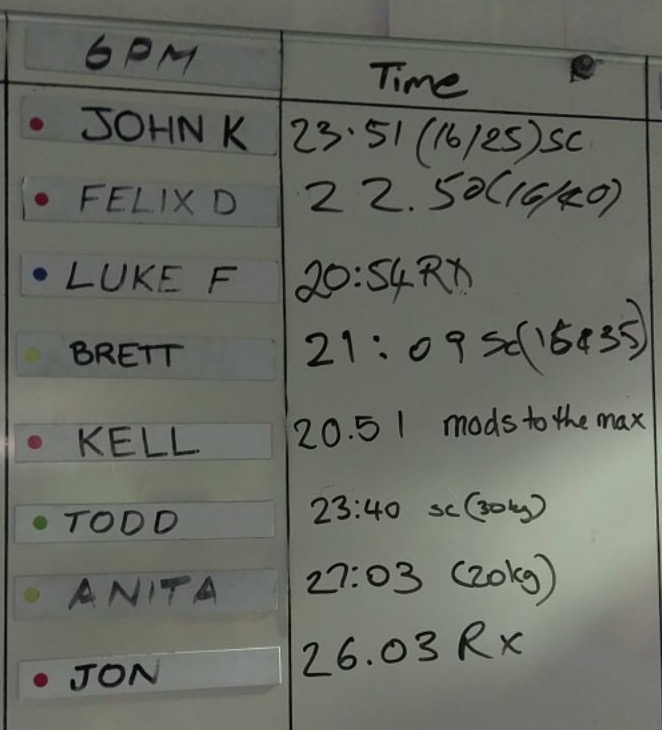 6PM Time
JOHN K 23.51 (16/25) SC
FELIX D 22.50 (16/40)
LUKE F 20:54 RX
BRETT 21:09 Sc(16&35)
KELL 20.51 mods to the max
TODD 23:40 sc (30kg)
ANITA 27:03 (20kg)
JON 26.03 Rx